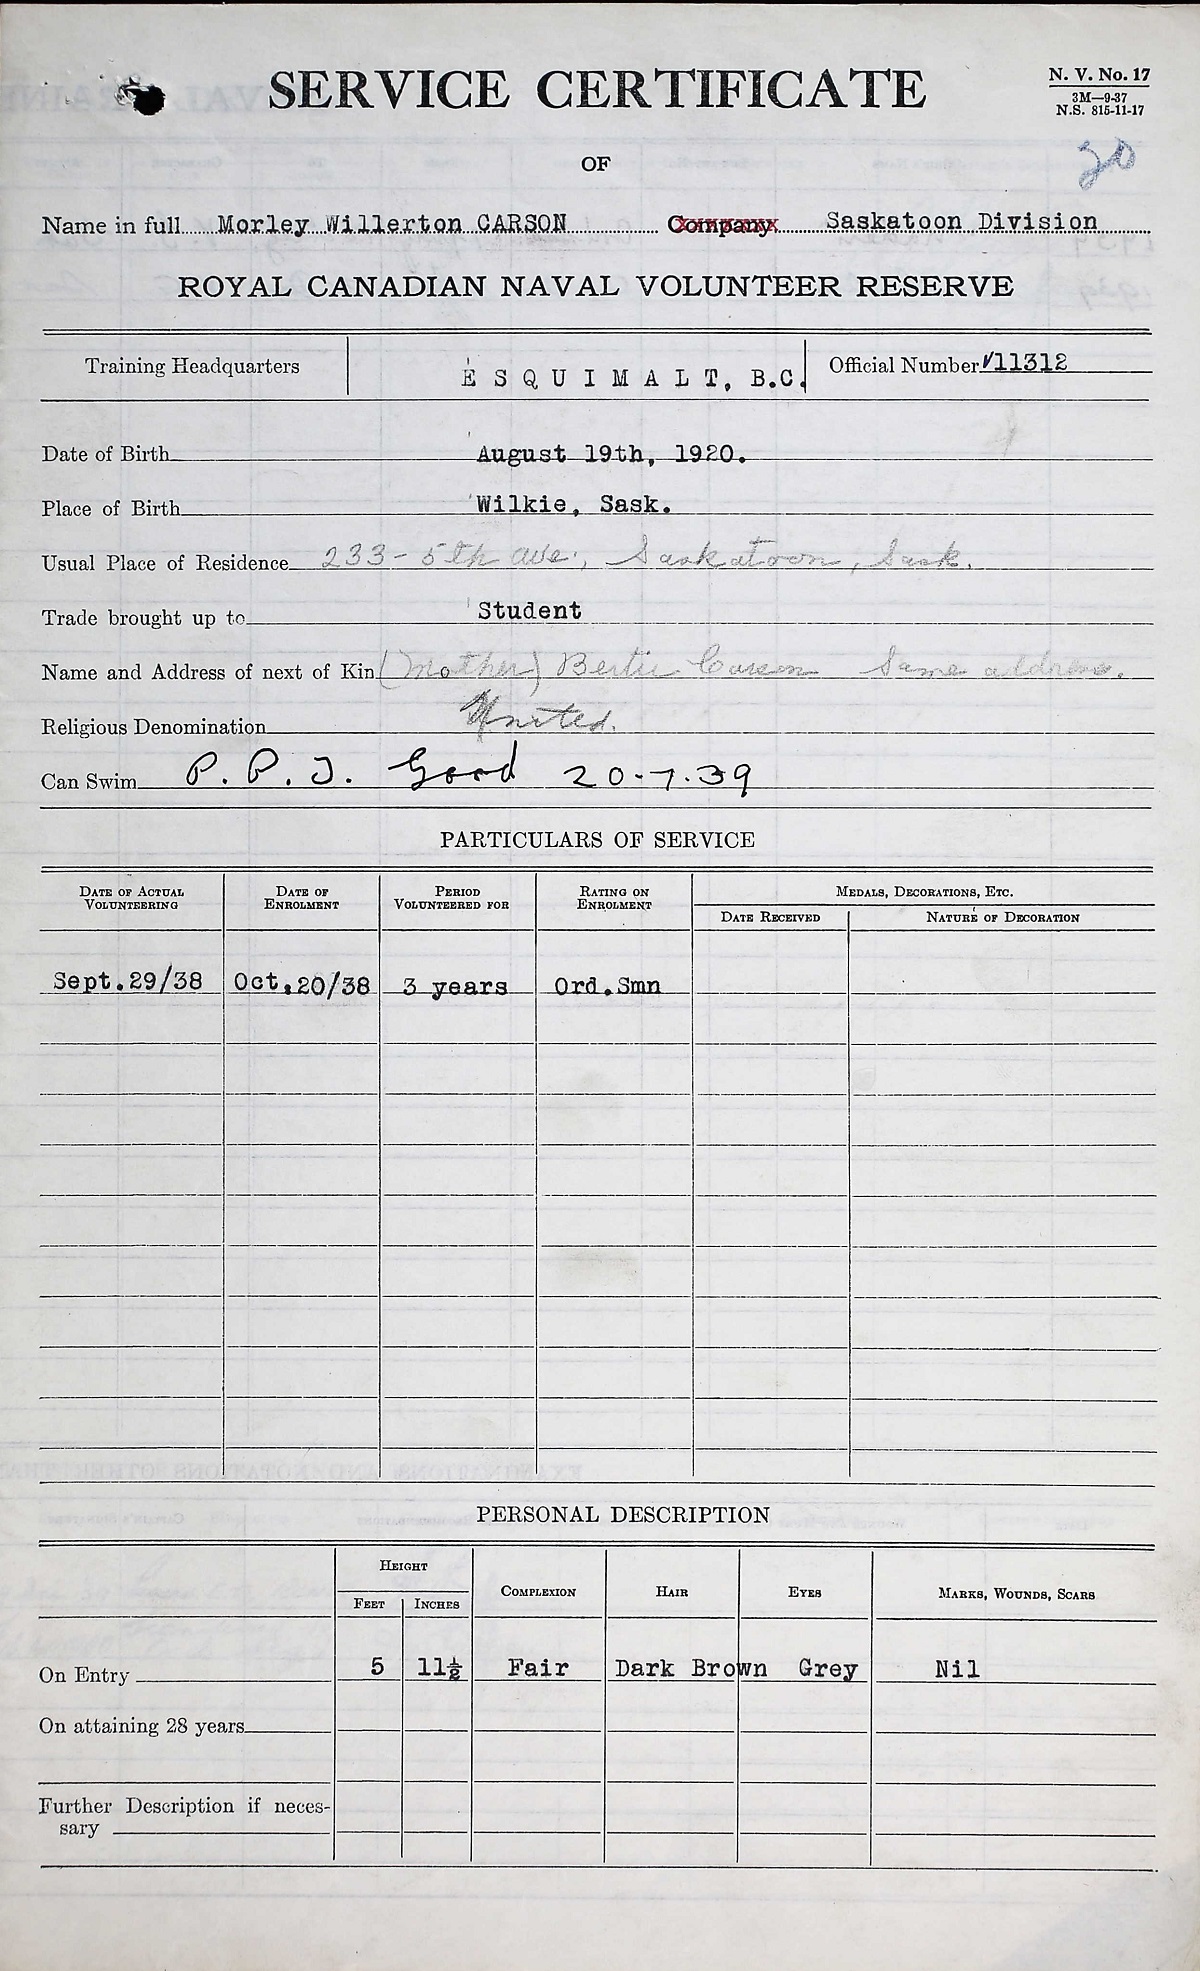 SERVICE CERTIFICATE
N. V. No. 17
3M—9-37
N.S. 815-11-17
20
OF
Name in full Morley Willerton CARSON Company Saskatoon Division
ROYAL CANADIAN NAVAL VOLUNTEER RESERVE
Training Headquarters ESQUIMALT, B.C. Official Number V11312
Date of Birth August 19th, 1920.
Place of Birth Wilkie, Sask.
Usual Place of Residence 233 - 5th ave; Saskatoon, Sask.
Trade brought up to Student
Name and Address of next of Kin (Mother) Bertie Carson Same address.
Religious Denomination United.
Can Swim P. P. J. Good 20-7-39
PARTICULARS OF SERVICE
DATE OF ACTUAL VOLUNTEERING DATE OF ENROLMENT PERIOD VOLUNTEERED FOR RATING ON ENROLMENT MEDALS, DECORATIONS, ETC.
DATE RECEIVED NATURE OF DECORATION
Sept.29/38 Oct.20/38 3 years Ord.Smn
PERSONAL DESCRIPTION
HEIGHT COMPLEXION HAIR EYES MARKS, WOUNDS, SCARS
FEET INCHES
On Entry 5 11½ Fair Dark Brown Grey Nil
On attaining 28 years
Further Description if neces-
sary